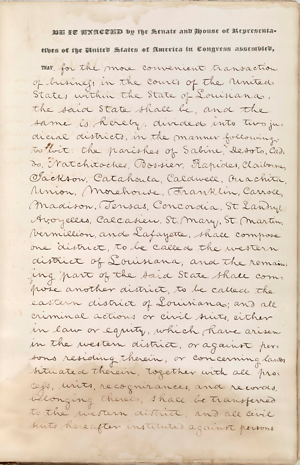 BE IT ENACTED by the Senate and House of Representa-
tives of the United States of America in Congress assembled,
THAT, for the more convenient transaction
of business in the courts of the United
States within the State of Louisiana,
the said State shall be, and the
same is hereby, divided into two ju-
dicial districts, in the manner following,
to wit: the parishes of Sabine, Desoto, Cad-
do, Natchitoches, Bossier, Rapides, Claiborne,
Jackson, Catahoula, Caldwell, Ouachita,
Union, Morehouse, Franklin, Carroll,
Madison, Tensas, Concordia, St. Landry,
Avoyelles, Calcasieu, St. Mary, St. Martin,
Vermillion, and Lafayette, shall compose
one district, to be called the western
district of Louisiana, and the remain-
ing part of the said State shall com-
pose another district, to be called the
eastern district of Louisiana; and all
criminal actions or civil suits, either
in law or equity, which have arisen
in the western district, or against per-
sons residing therein, or concerning lands
situated therein, together with all pro-
cess, writs, recognizances, and records,
belonging thereto, shall be transferred
to the western district, and all civil
suits hereafter instituted against persons